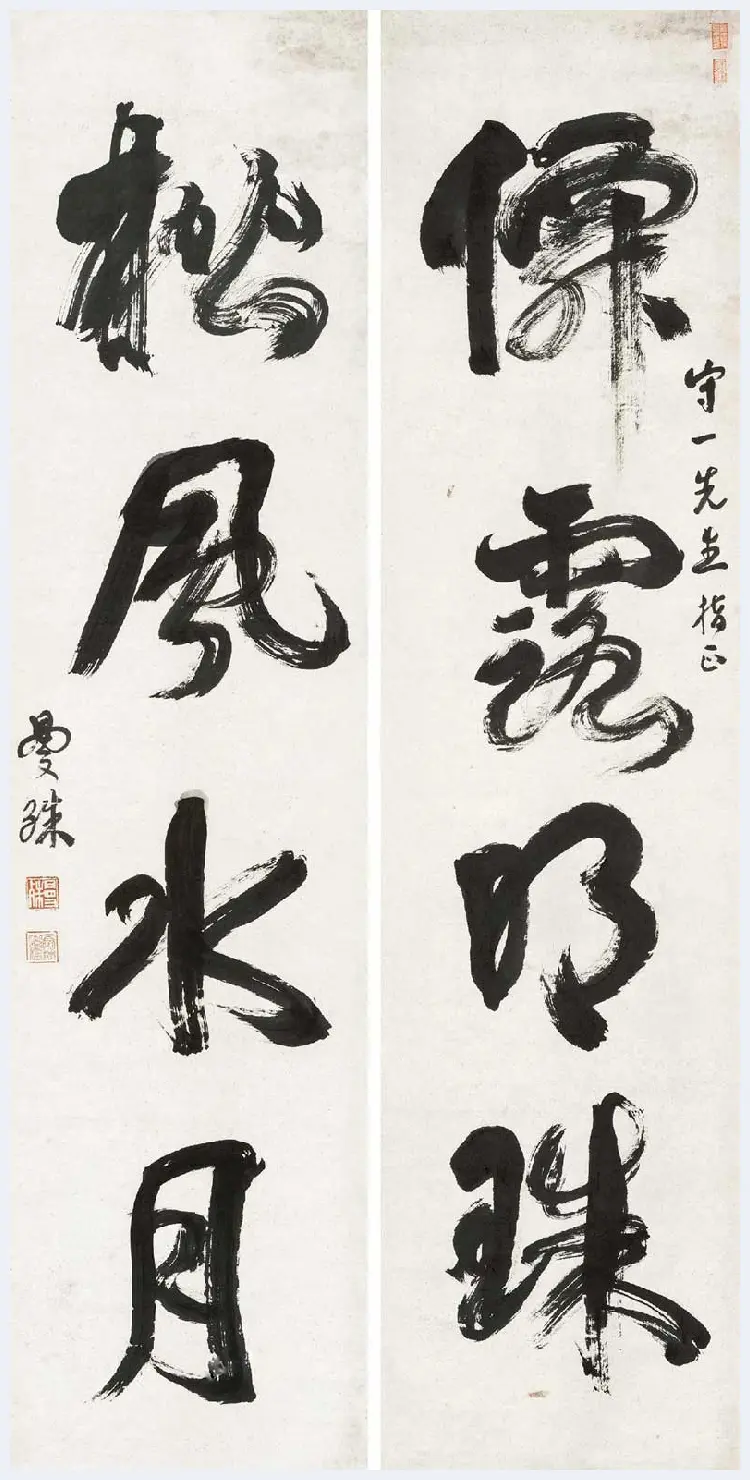 僊露明珠
守一先生指正
松風水月
曼殊
曼殊